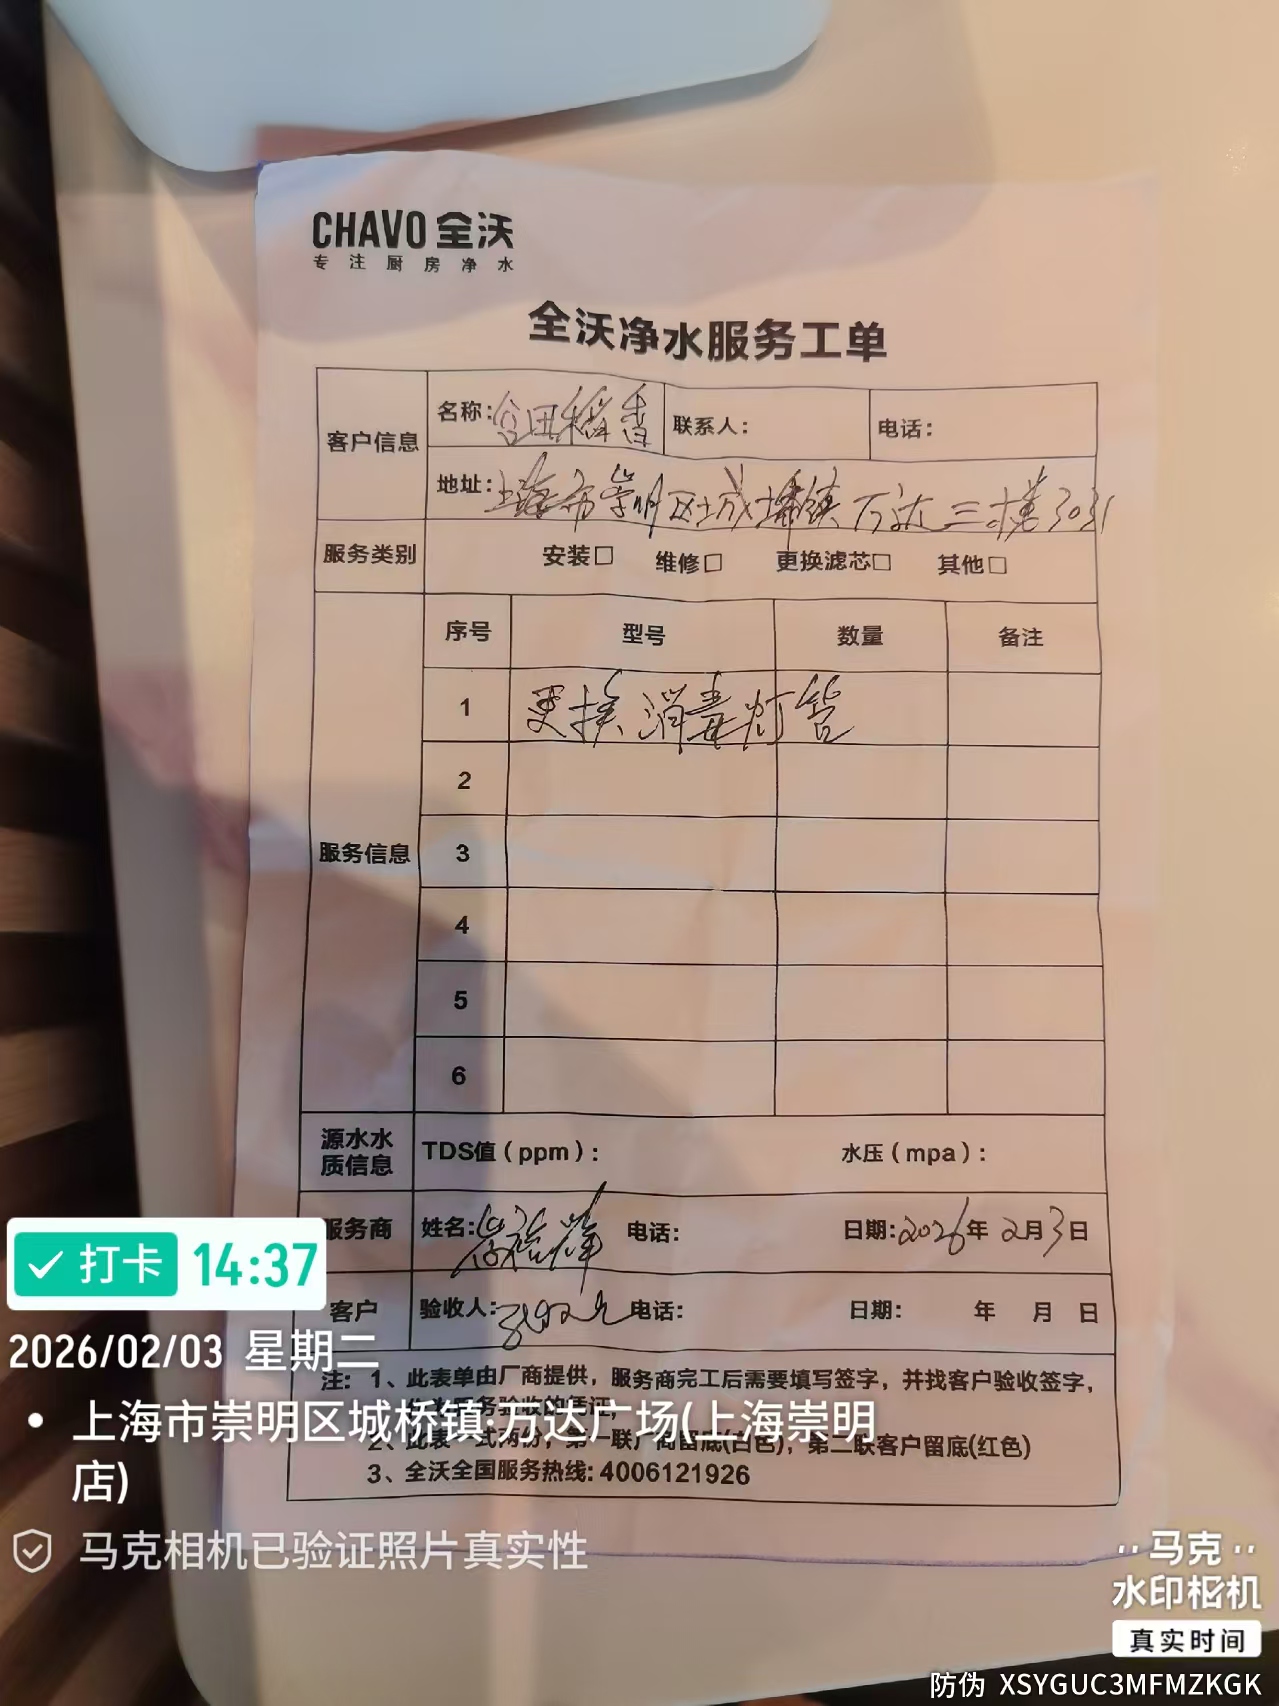 CHAVO 全沃
专注厨房净水
全沃净水服务工单
客户信息 名称: 稻香 联系人: 电话:
地址: 上海市崇明区城桥镇万达三楼3031
服务类别 安装□ 维修□ 更换滤芯□ 其他□
服务信息 序号 型号 数量 备注
1 更换消毒灯管
2
3
4
5
6
源水水质信息 TDS值(ppm): 水压(mpa):
服务商 姓名: 电话: 日期: 2026年2月3日
客户 验收人: 电话: 日期: 年 月 日
注: 1、此表单由厂商提供，服务商完工后需要填写签字，并找客户验收签字，
务验收的凭证;
2、此表一式两份，第一联厂商留底(白色)，第二联客户留底(红色)
3、全沃全国服务热线: 4006121926
打卡 14:37
2026/02/03 星期二
上海市崇明区城桥镇·万达广场(上海崇明
店)
马克相机已验证照片真实性
马克
水印相机
真实时间
防伪 XSYGUC3MFMZKGK